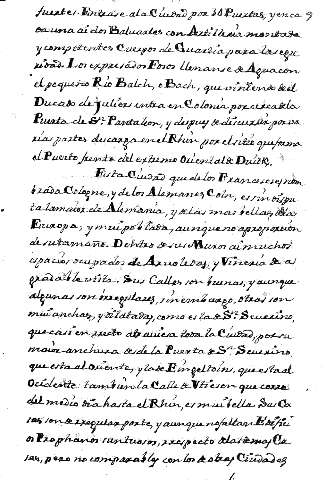 fuertes. Entrase á la Ciudad por 10 Puertas, y en ca
da una ai dos Baluartes con Artilleria montada
y competentes Cuerpos de Guardia para la segu
ridad. Los expresados Fosos llenanse de Agua con
el pequeño Rio Balch, o Bach, que viniendo del
Ducado de Juliers entra en Colonia por cerca de la
Puerta de Sn. Pantaleon, y despues de discurrir por va
rias partes descarga en el Rhin por el sitio que forma
el Puerto frente del extremo Oriental de Duitz.
Esta Ciudad que de los Franceses es nom
brada Cologne, y de los Alemanes Coln, es sin dispu
ta la maior de Alemania, y de las mas bellas de la
Europa, y mui poblada, aunque no a proporcion
de su tamaño. Dentro de sus Muros ai muchos
espacios ocupados de Arboledas, y Viñeria de a
gradable vista. Sus Calles son buenas, y aunque
algunas son irregulares, sin embargo, otras son
mui anchas, y dilatadas, como es la de Sn. Severino,
que casi en recto atraviesa toda la Ciudad, por su
maior anchura desde la Puerta de Sn. Severino,
que esta al Oriente, y la de Eingelstoins, que esta al
Ocidente tambien la Calle de Vtresen que corre
del medio dia hasta el Rhin, es mui bella. Sus Ca
sas son de regular porte, y aunque no faltan Edifici
os Prophanos suntuosos, respecto de las demas Ca
sas, pero no comparables con los de otras Ciudades